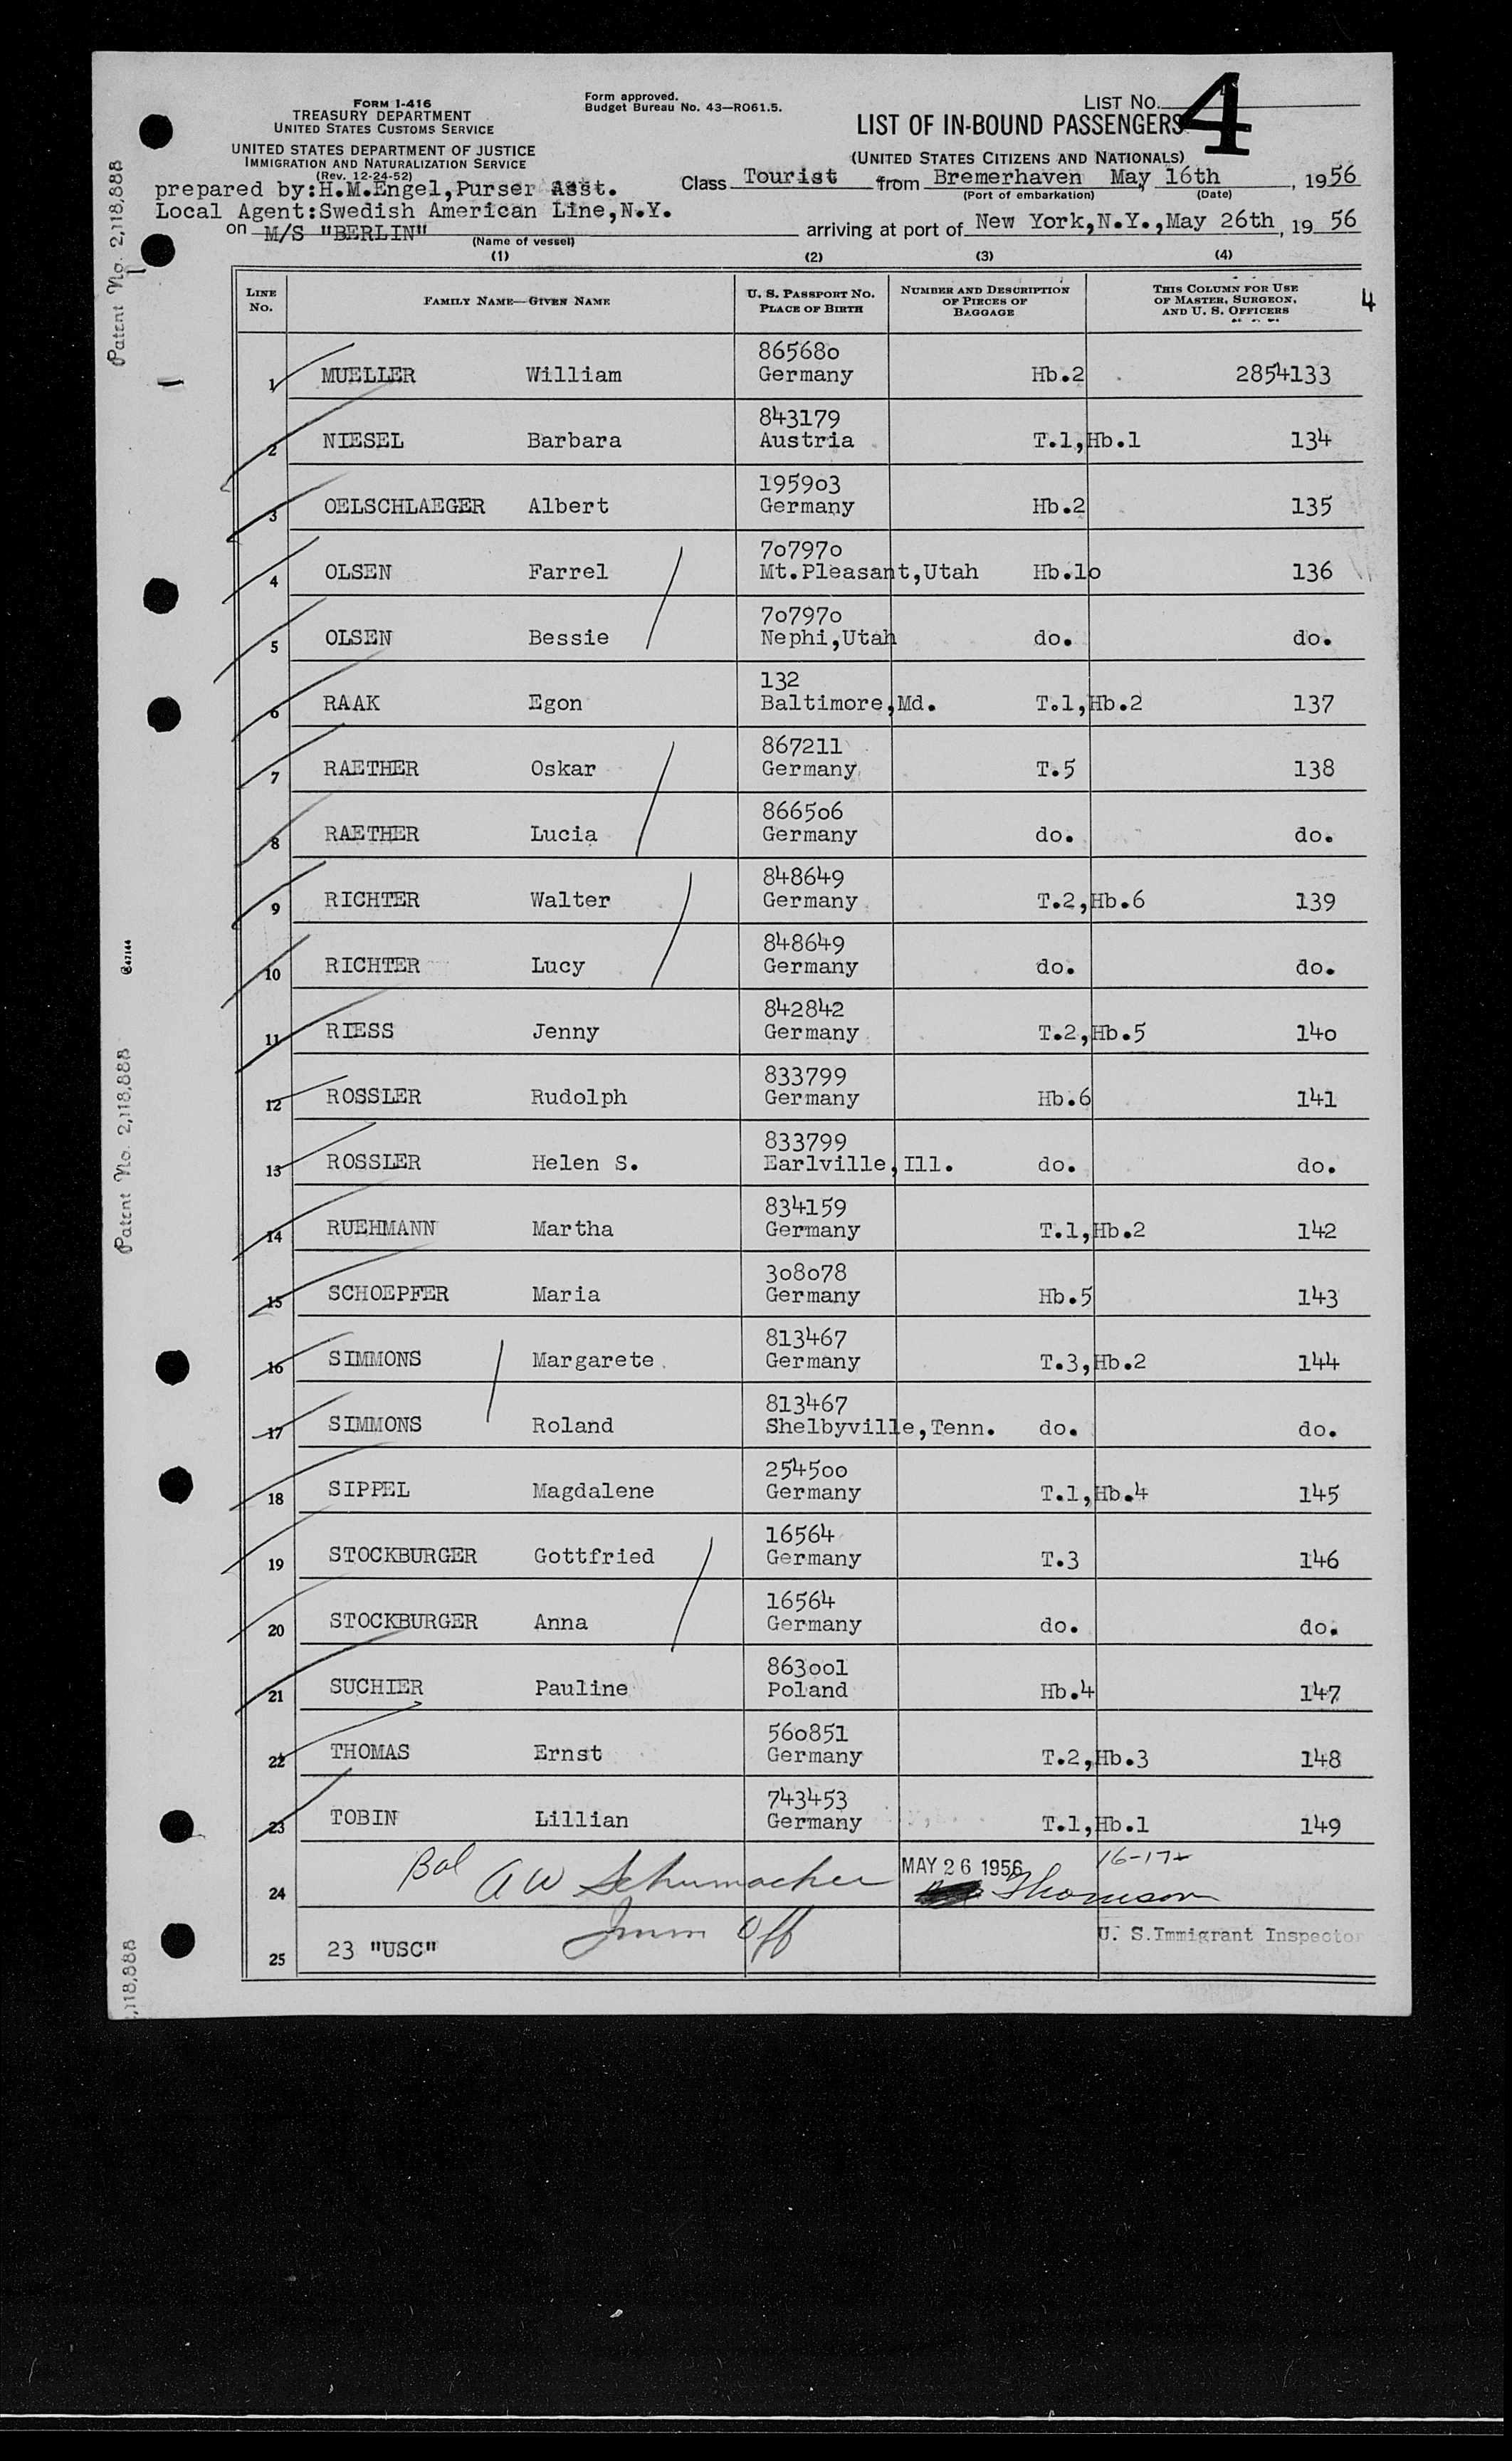 FORM I-416
TREASURY DEPARTMENT
UNITED STATES CUSTOMS SERVICE
UNITED STATES DEPARTMENT OF JUSTICE
IMMIGRATION AND NATURALIZATION SERVICE
(Rev. 12-24-52)
Form approved.
Budget Bureau No. 43—RO61.5.
LIST No. 4
LIST OF IN-BOUND PASSENGERS
(UNITED STATES CITIZENS AND NATIONALS)
prepared by:H.M.Engel,Purser Asst.
Class Tourist from Bremerhaven May 16th, 1956
(Port of embarkation) (Date)
Local Agent:Swedish American Line,N.Y.
on M/S "BERLIN" arriving at port of New York,N.Y.,May 26th, 19 56
(Name of vessel)
(1) (2) (3) (4)
LINE No. FAMILY NAME—GIVEN NAME U. S. PASSPORT NO. PLACE OF BIRTH NUMBER AND DESCRIPTION OF PIECES OF BAGGAGE THIS COLUMN FOR USE OF MASTER, SURGEON, AND U. S. OFFICERS 4
865680
1 MUELLER William Germany Hb.2 2854133
843179
2 NIESEL Barbara Austria T.1,Hb.1 134
195903
3 OELSCHLAEGER Albert Germany Hb.2 135
707970
4 OLSEN Farrel Mt.Pleasant,Utah Hb.10 136
707970
5 OLSEN Bessie Nephi,Utah do. do.
132
6 RAAK Egon Baltimore,Md. T.1,Hb.2 137
867211
7 RAETHER Oskar Germany T.5 138
866506
8 RAETHER Lucia Germany do. do.
848649
9 RICHTER Walter Germany T.2,Hb.6 139
848649
10 RICHTER Lucy Germany do. do.
842842
11 RIESS Jenny Germany T.2,Hb.5 140
833799
12 ROSSLER Rudolph Germany Hb.6 141
833799
13 ROSSLER Helen S. Earlville,Ill. do. do.
834159
14 RUEHMANN Martha Germany T.1,Hb.2 142
308078
15 SCHOEPFER Maria Germany Hb.5 143
813467
16 SIMMONS Margarete Germany T.3,Hb.2 144
813467
17 SIMMONS Roland Shelbyville,Tenn. do. do.
254500
18 SIPPEL Magdalene Germany T.1,Hb.4 145
16564
19 STOCKBURGER Gottfried Germany T.3 146
16564
20 STOCKBURGER Anna Germany do. do.
863001
21 SUCHIER Pauline Poland Hb.4 147
560851
22 THOMAS Ernst Germany T.2,Hb.3 148
743453
23 TOBIN Lillian Germany T.1,Hb.1 149
24 Bal A W Schumacher MAY 26 1956 Thomson
Imm Off
U. S. Immigrant Inspector
25 23 "USC"
Patent No. 2,118,888
Patent No. 2,118,888
,118,888